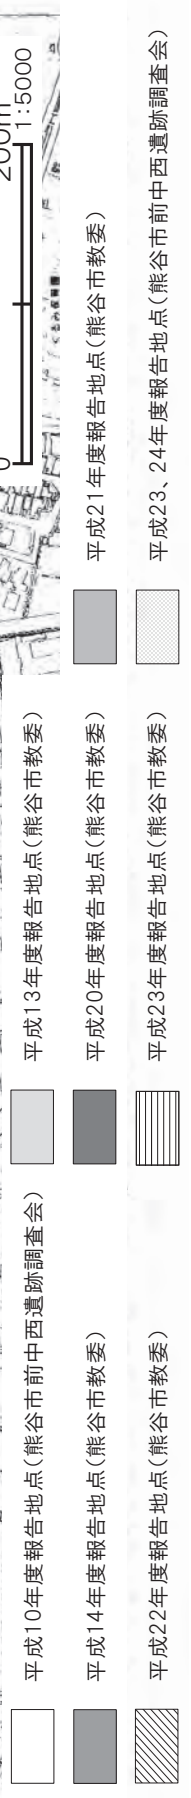 0 200m
1:5000
平成10年度報告地点(熊谷市前中西遺跡調査会)
平成13年度報告地点(熊谷市教委)
平成14年度報告地点(熊谷市教委)
平成20年度報告地点(熊谷市教委)
平成21年度報告地点(熊谷市教委)
平成22年度報告地点(熊谷市教委)
平成23年度報告地点(熊谷市教委)
平成23、24年度報告地点(熊谷市前中西遺跡調査会)